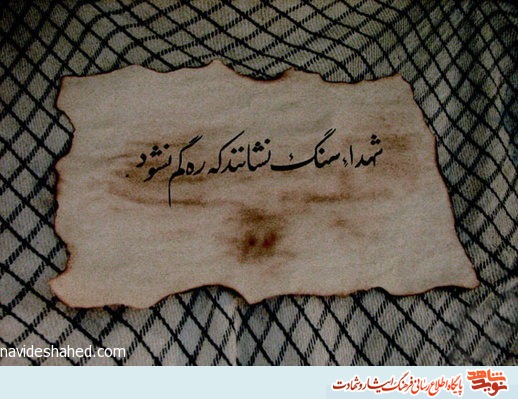 شهداء سنگ نشانند که ره گم نشود.
navideshahed.com
نوید شاهد
پایگاه اطلاع رسانی فرهنگ ایثار و شهادت